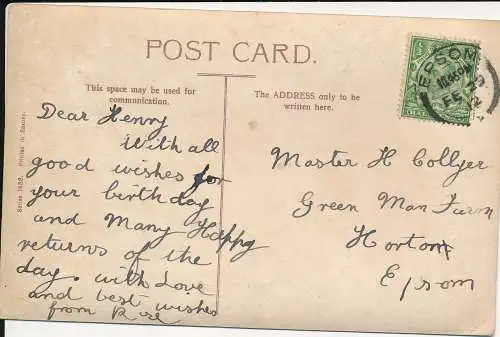 POST CARD.
This space may be used for
communication.
The ADDRESS only to be
written here.
EPSOM
FE 12
Dear Henny
With all
good wishes for
your birthday
and Many Happy
returns of the
day. with Love
and best wishes
from Rose
Master H Collyer
Green Man Farm
Horton
Epsom
Printed in Saxony.